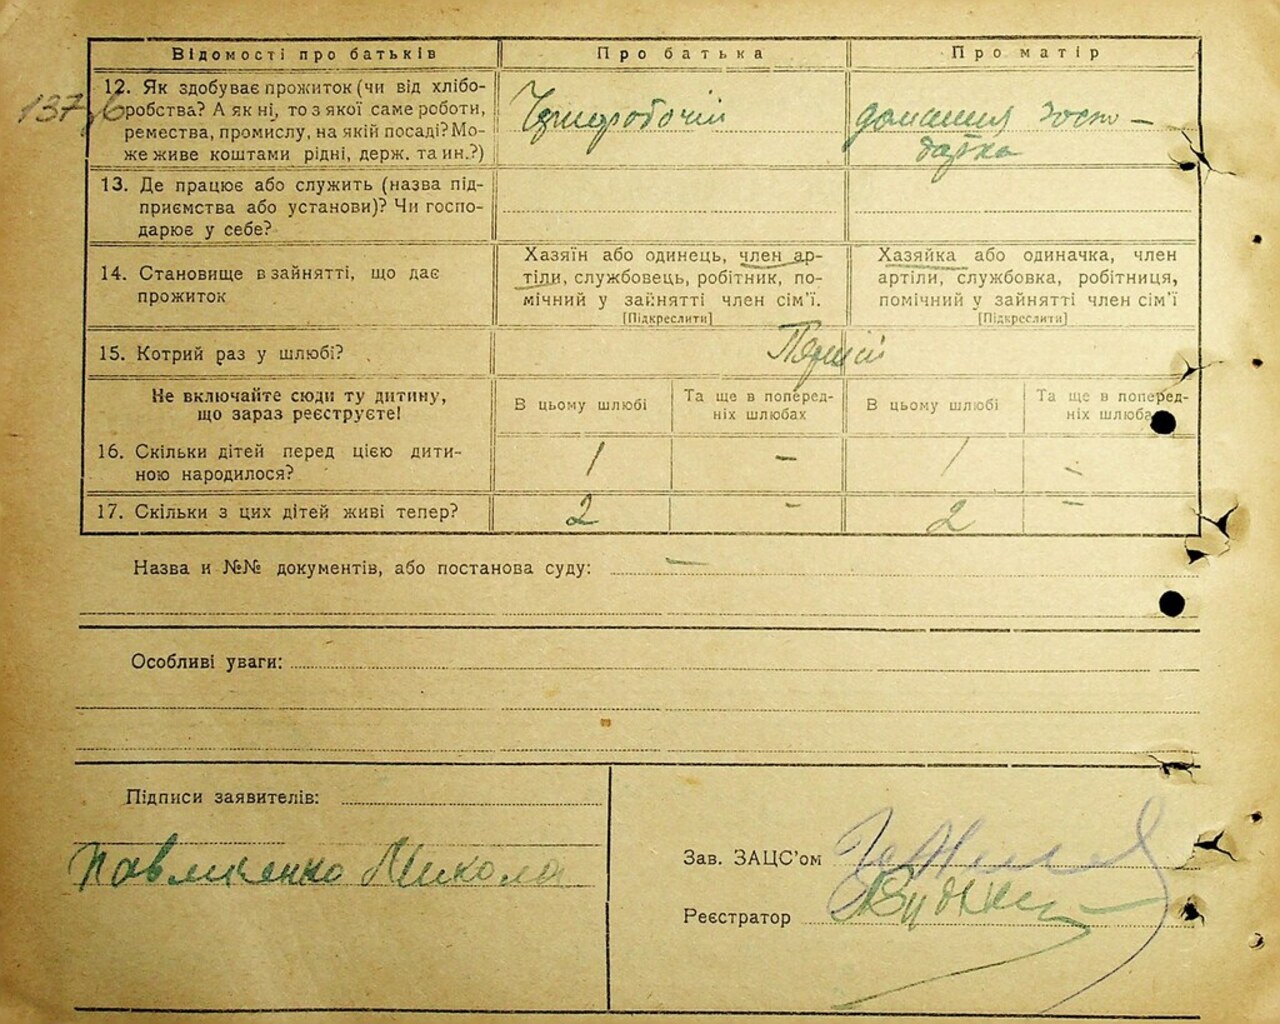 Відомості про батьків
Про батька
Про матір
137
12. Як здобуває прожиток (чи від хлібо-
робства? А як ні, то з якої саме роботи,
ремества, промислу, на якій посаді? Мо-
же живе коштами рідні, держ. та ин.?)
Чорноробочий
домашня госпо-
дарка
13. Де працює або служить (назва під-
приємства або установи)? Чи госпо-
дарює у себе?
14. Становище в зайнятті, що дає
прожиток
Хазяїн або одинець, член ар-
тіли, службовець, робітник, по-
мічний у зайнятті член сім’ї.
[Підкреслити]
Хазяйка або одиначка, член
артіли, службовка, робітниця,
помічний у зайнятті член сім’ї
[Підкреслити]
15. Котрий раз у шлюбі?
Перший
Не включайте сюди ту дитину,
що зараз реєструєте!
В цьому шлюбі
Та ще в поперед-
ніх шлюбах
В цьому шлюбі
Та ще в поперед-
ніх шлюбах
16. Скільки дітей перед цією дити-
ною народилося?
1
–
1
–
17. Скільки з цих дітей живі тепер?
2
–
2
–
Назва и №№ документів, або постанова суду: –
Особливі уваги:
Підписи заявителів:
Павличенко Микола
Зав. ЗАЦС’ом
Реєстратор